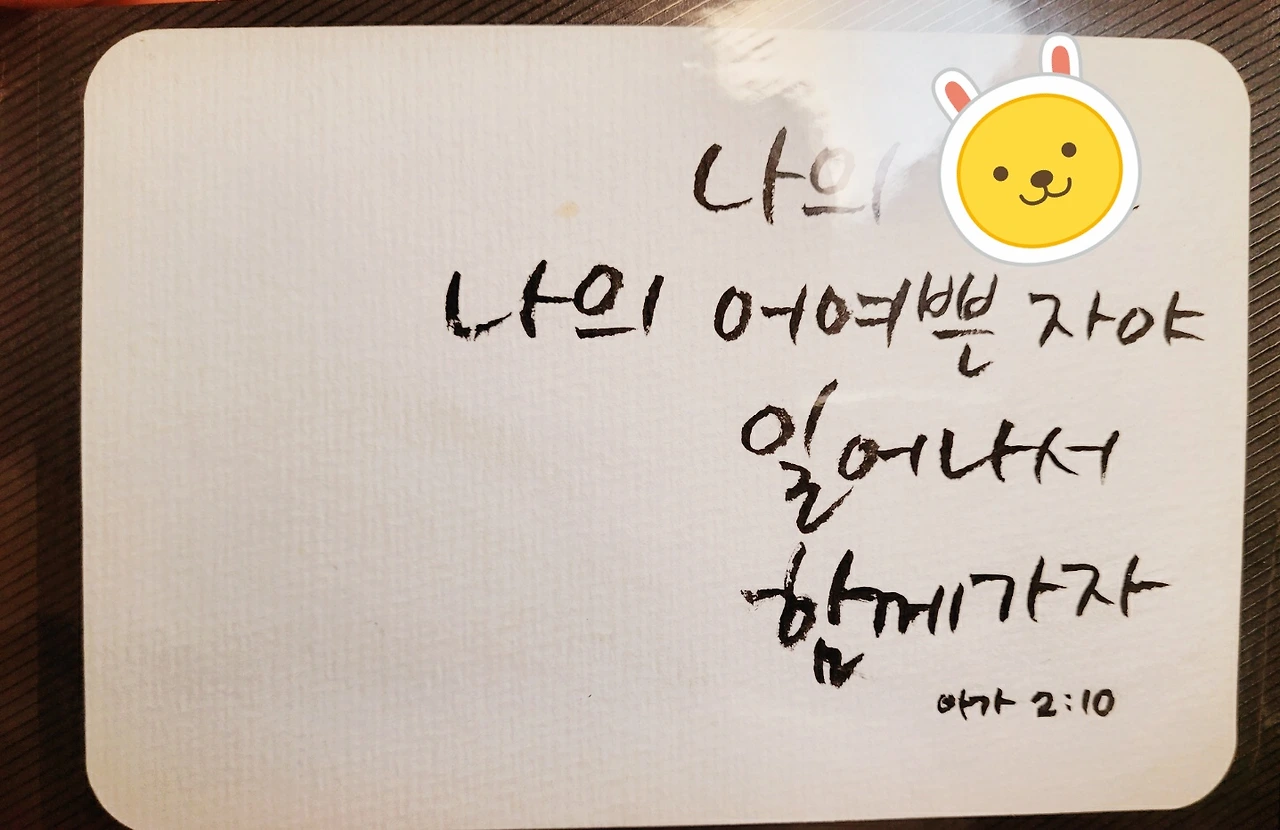 나의
나의 어여쁜 자야
일어나서
함께가자
아가 2:10